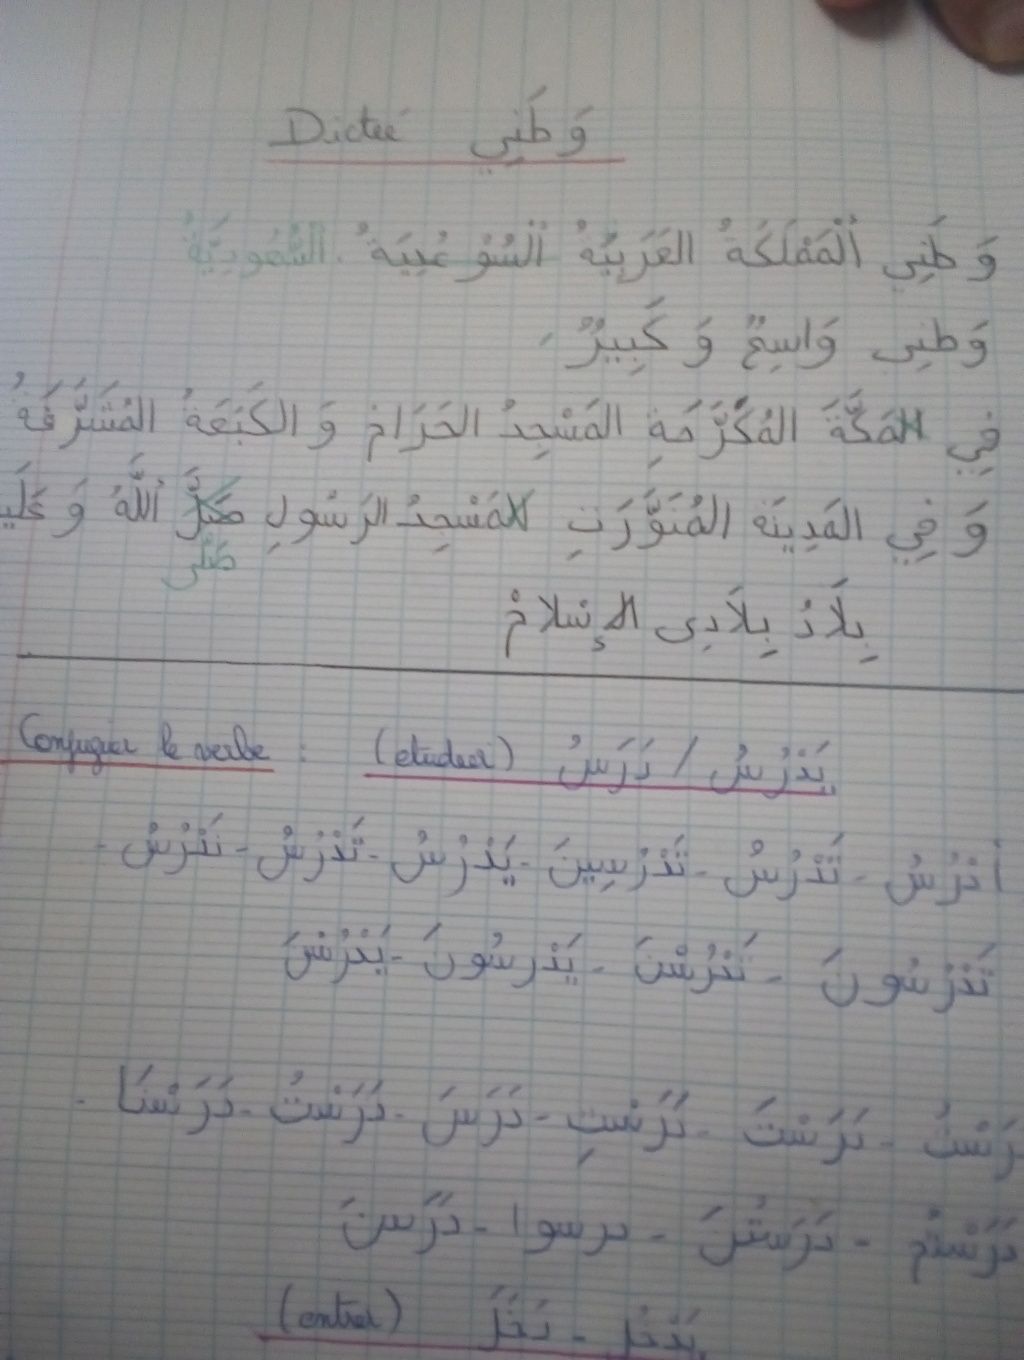 Dictée وَطَنِي
وَطَنِي الْمَمْلَكَةُ العَرَبِيَّةُ السُّوْعُيَةُ . السُّعُودِيَّةُ
وَطَنِي وَاسِعٌ وَ كَبِيرٌ .
فِي المَكَّةَ المُكَرَّمَةِ المَسْجِدُ الحَرَامْ وَ الكَبَعَةُ المُشَرَّفَةُ
وَ فِي المَدِينَة المُنَوَّرَتِ المَسْجِدُ الرَسُولِ صَلَّ اللَّهُ وَ عَلَيـ
صَلَّى
بِلَادُ بِلَادِى الإِسْلَامْ
Conjuguer le verbe : (etudier) دَرَسَ / يَدْرُسُ
أَدْرُسُ - تَدْرُسُ - تَدْرُسِينَ - يَدْرُسُ - تَدْرُسُ - نَدْرُسُ -
تَدْرُسُونَ - تَدْرُسْنَ - يَدْرسُونَ - يَدْرُسْنَ
رَسْتُ - دَرَسْتَ - دَرَسْتِ - دَرَسَ - دَرَسَتْ - دَرَسْنَا .
دَرَسْتُمْ - دَرَسْتُنَّ - درسوا - دَرَسْنَ
(entrer) دَخَلَ - يَدْخل